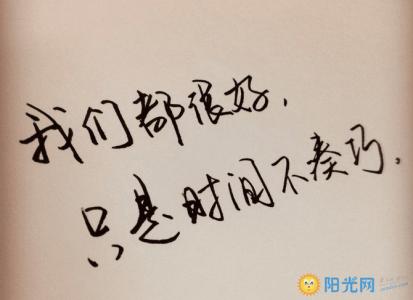 我们都很好，
只是时间不凑巧，
阳光网